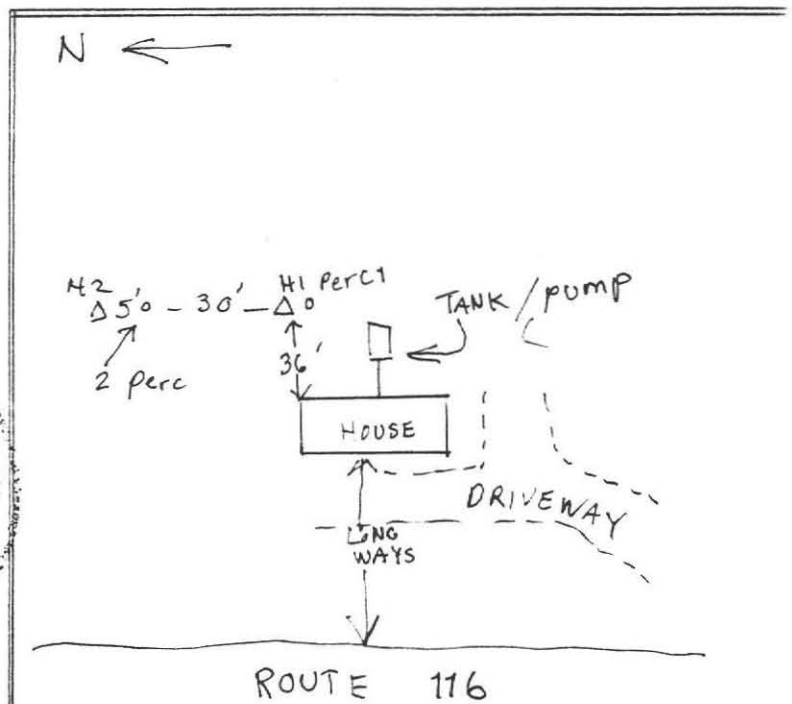 N
H2
5' - 30' -
H1 Perc1
TANK / pump
2 Perc
36'
HOUSE
DRIVEWAY
LONG
WAYS
ROUTE 116